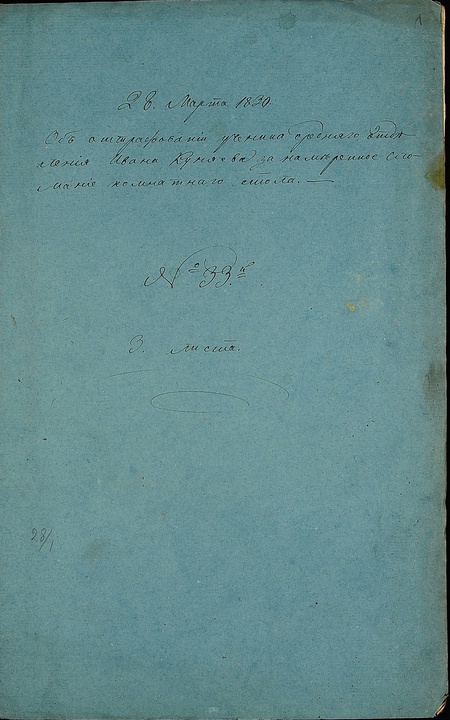 1
28. Марта 1830.
Объ оштрафованіи ученика средняго отдѣ
ленія Ивана Куняева за намѣренное сло-
маніе комнатнаго стола. —
№ 33.й
3. листа.
28/1